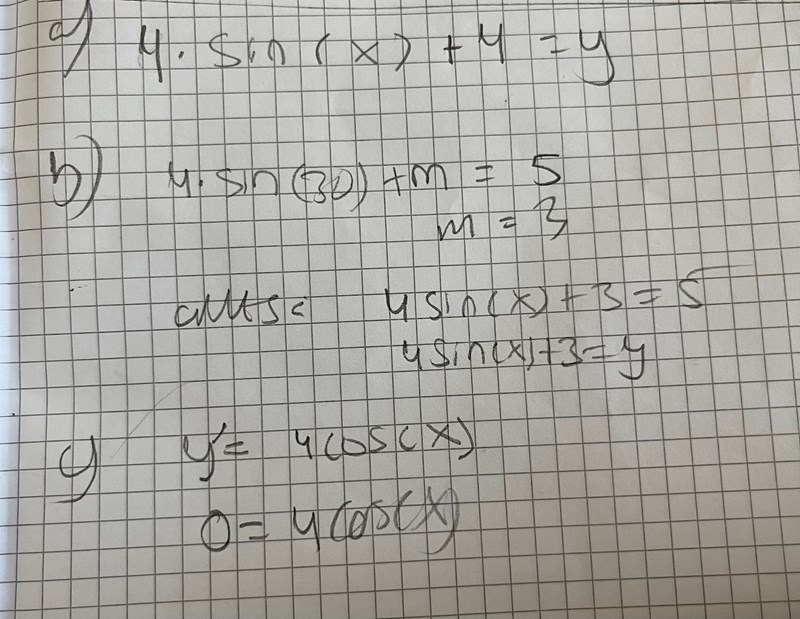 a) 4. sin(x) +4 =y
b) 4. sin(30) +m = 5
m = 3
4 sin(x)+3=5
4 sin(x)+3=y
y'= 4cos(x)
0= 4cos(x)